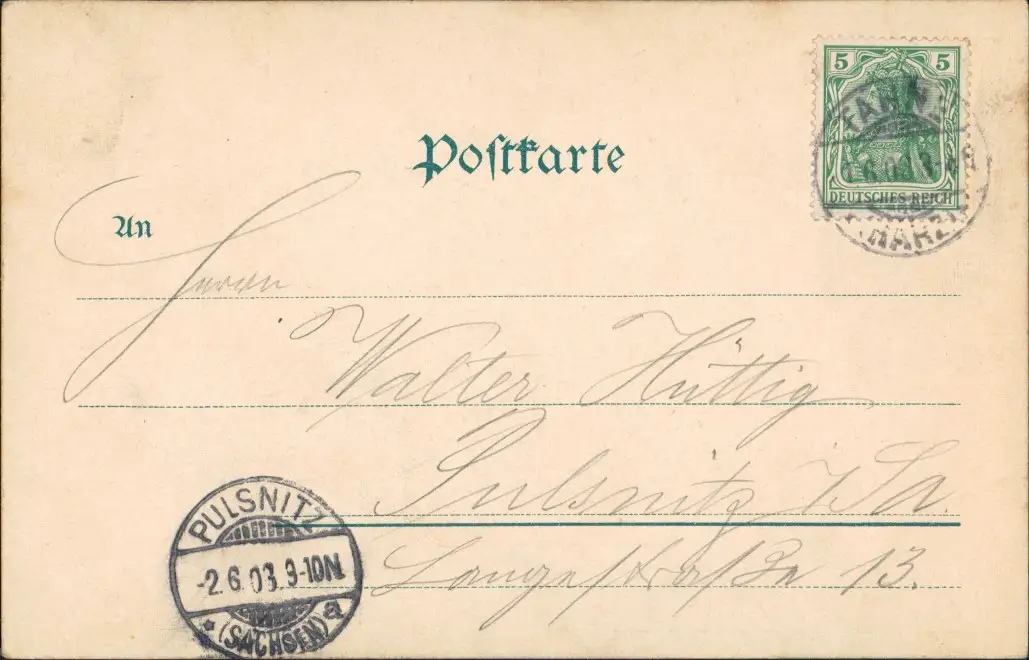 5 5
DEUTSCHES REICH
(HARZ)
Postkarte
An
Herrn
Walter Hüttig
Pulsnitz i/Sa.
Langestraße 13.
PULSNITZ
-2.6.03.9-10N
* (SACHSEN) a